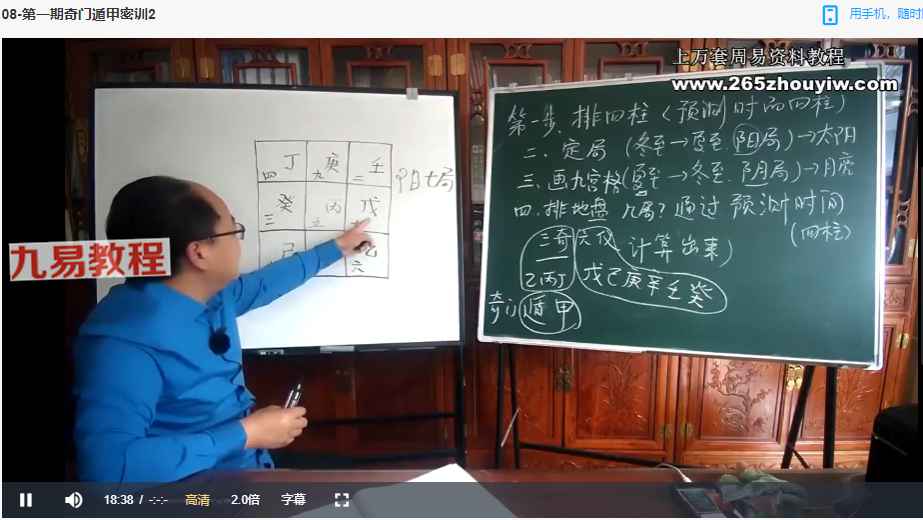 08-第一期奇门遁甲密训2
用手机，随时
上万套周易资料教程
www.265zhouyiw.com
九易教程
丁 庚 壬
四 九 二
阳七局
癸 丙 戊
三 五
己
六
第一步、排四柱（预测时的四柱）
二、定局（冬至→夏至 阳局）→太阳
三、画九宫格（夏至→冬至、阴局）→月亮
四、排地盘 几局？通过预测时间
（四柱）
三奇 六仪 计算出来）
乙丙丁 戊己庚辛壬癸
奇门遁甲
18:38 / -:-:-
高清
2.0倍
字幕